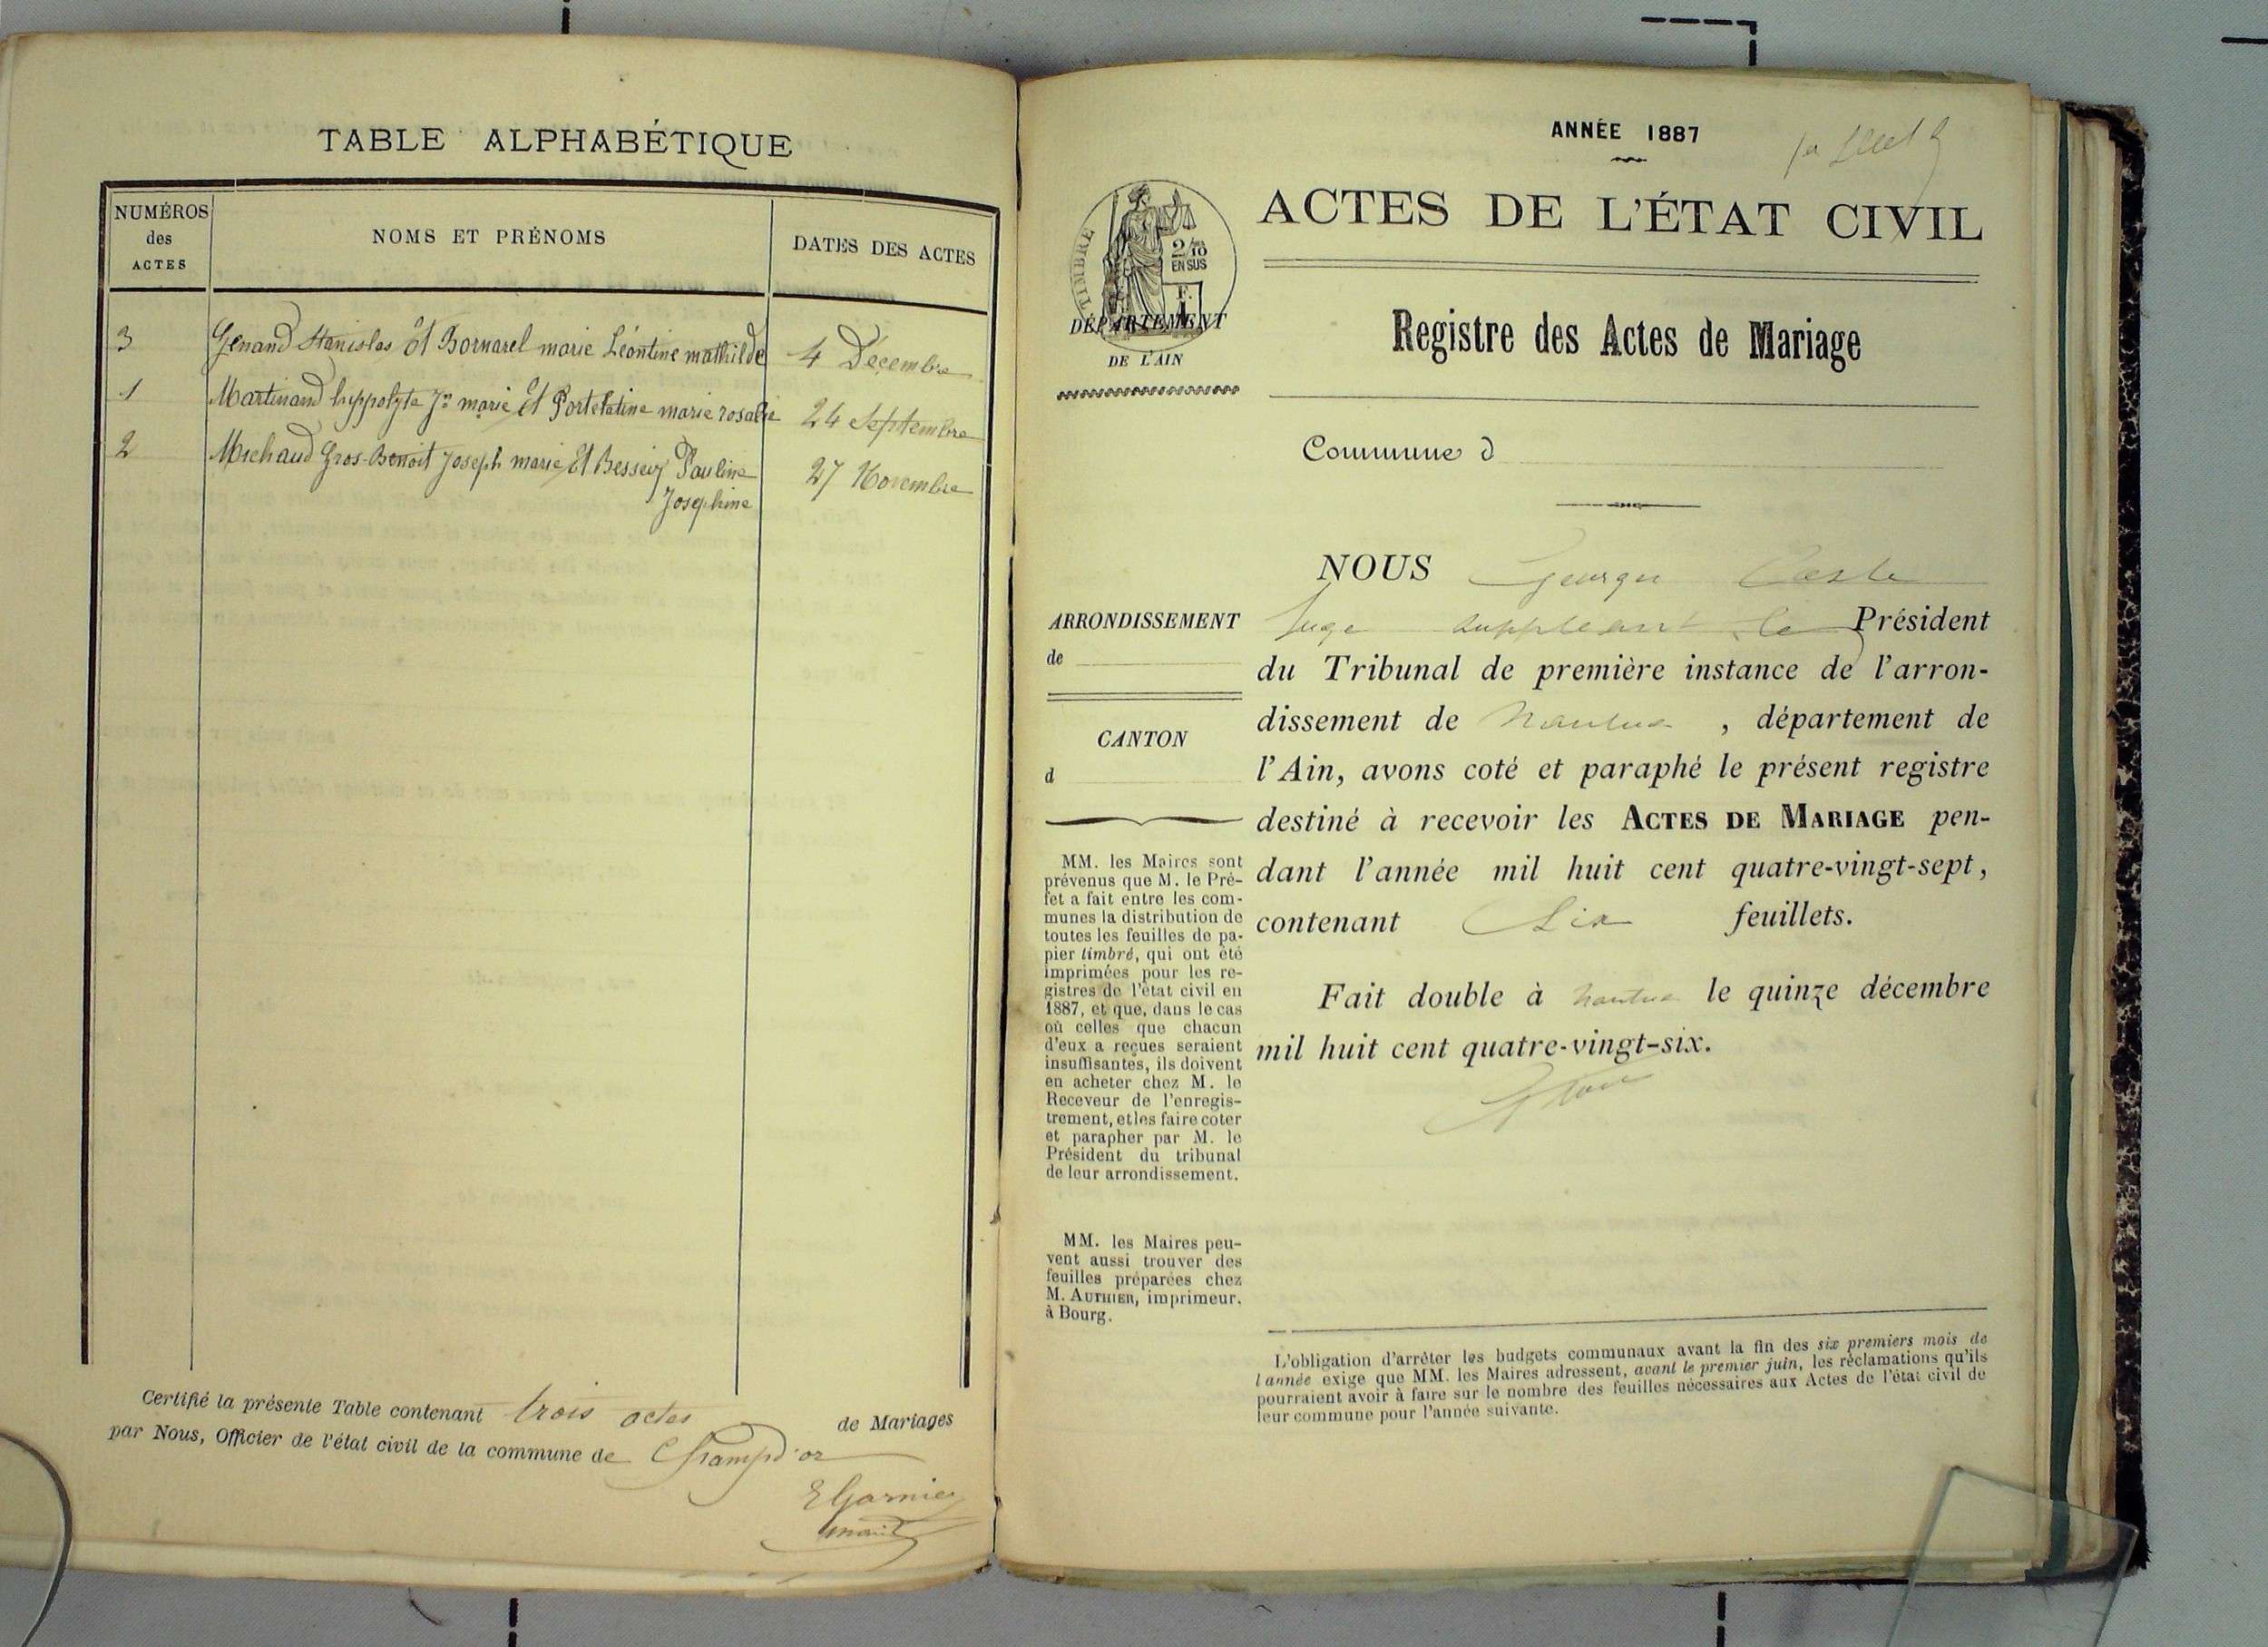 TABLE ALPHABÉTIQUE
NUMÉROS
des
ACTES
NOMS ET PRÉNOMS
DATES DES ACTES
3 Genand Stanislas Et Bornarel marie Léontine mathilde 4 Décembre
1 Martinand hyppolyte Jn marie Et Portelatine marie rosalie 24 Septembre
2 Michaud Gros-Benoit Joseph marie Et Bessey Pauline 27 Novembre
Josephine
Certifié la présente Table contenant trois actes de Mariages
par Nous, Officier de l'état civil de la commune de Champd'or
E Garnier
ANNÉE 1887
ACTES DE L'ÉTAT CIVIL
TIMBRE
2/10
EN SUS
1 F.
DÉPARTEMENT
DE L'AIN
Registre des Actes de Mariage
Commune d
NOUS Georges
Juge suppléant le Président
du Tribunal de première instance de l'arron-
dissement de Nantua, département de
l'Ain, avons coté et paraphé le présent registre
destiné à recevoir les ACTES DE MARIAGE pen-
dant l'année mil huit cent quatre-vingt-sept,
contenant Six feuillets.
Fait double à Nantua le quinze décembre
mil huit cent quatre-vingt-six.
ARRONDISSEMENT
de
CANTON
d
MM. les Maires sont
prévenus que M. le Pré-
fet a fait entre les com-
munes la distribution de
toutes les feuilles de pa-
pier timbré, qui ont été
imprimées pour les re-
gistres de l'état civil en
1887, et que, dans le cas
où celles que chacun
d'eux a reçues seraient
insuffisantes, ils doivent
en acheter chez M. le
Receveur de l'enregis-
trement, et les faire coter
et parapher par M. le
Président du tribunal
de leur arrondissement.
MM. les Maires peu-
vent aussi trouver des
feuilles préparées chez
M. AUTHIER, imprimeur,
à Bourg.
L'obligation d'arrêter les budgets communaux avant la fin des six premiers mois de
l'année exige que MM. les Maires adressent, avant le premier juin, les réclamations qu'ils
pourraient avoir à faire sur le nombre des feuilles nécessaires aux Actes de l'état civil de
leur commune pour l'année suivante.